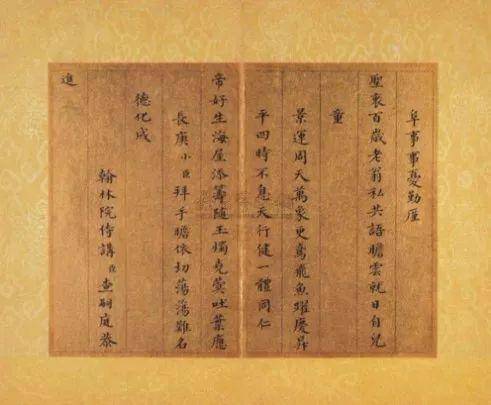 阜事事憂勤厪
聖衷百歲老翁私共語瞻雲就日自兒
童
景運周天萬象更鳶飛魚躍慶昇
平四時不息天行健一體同仁
帝好生海屋添籌隨玉燭堯蓂吐葉應
長庚小臣拜手瞻依切蕩蕩難名
德化成
翰林院侍講臣查嗣庭恭
進